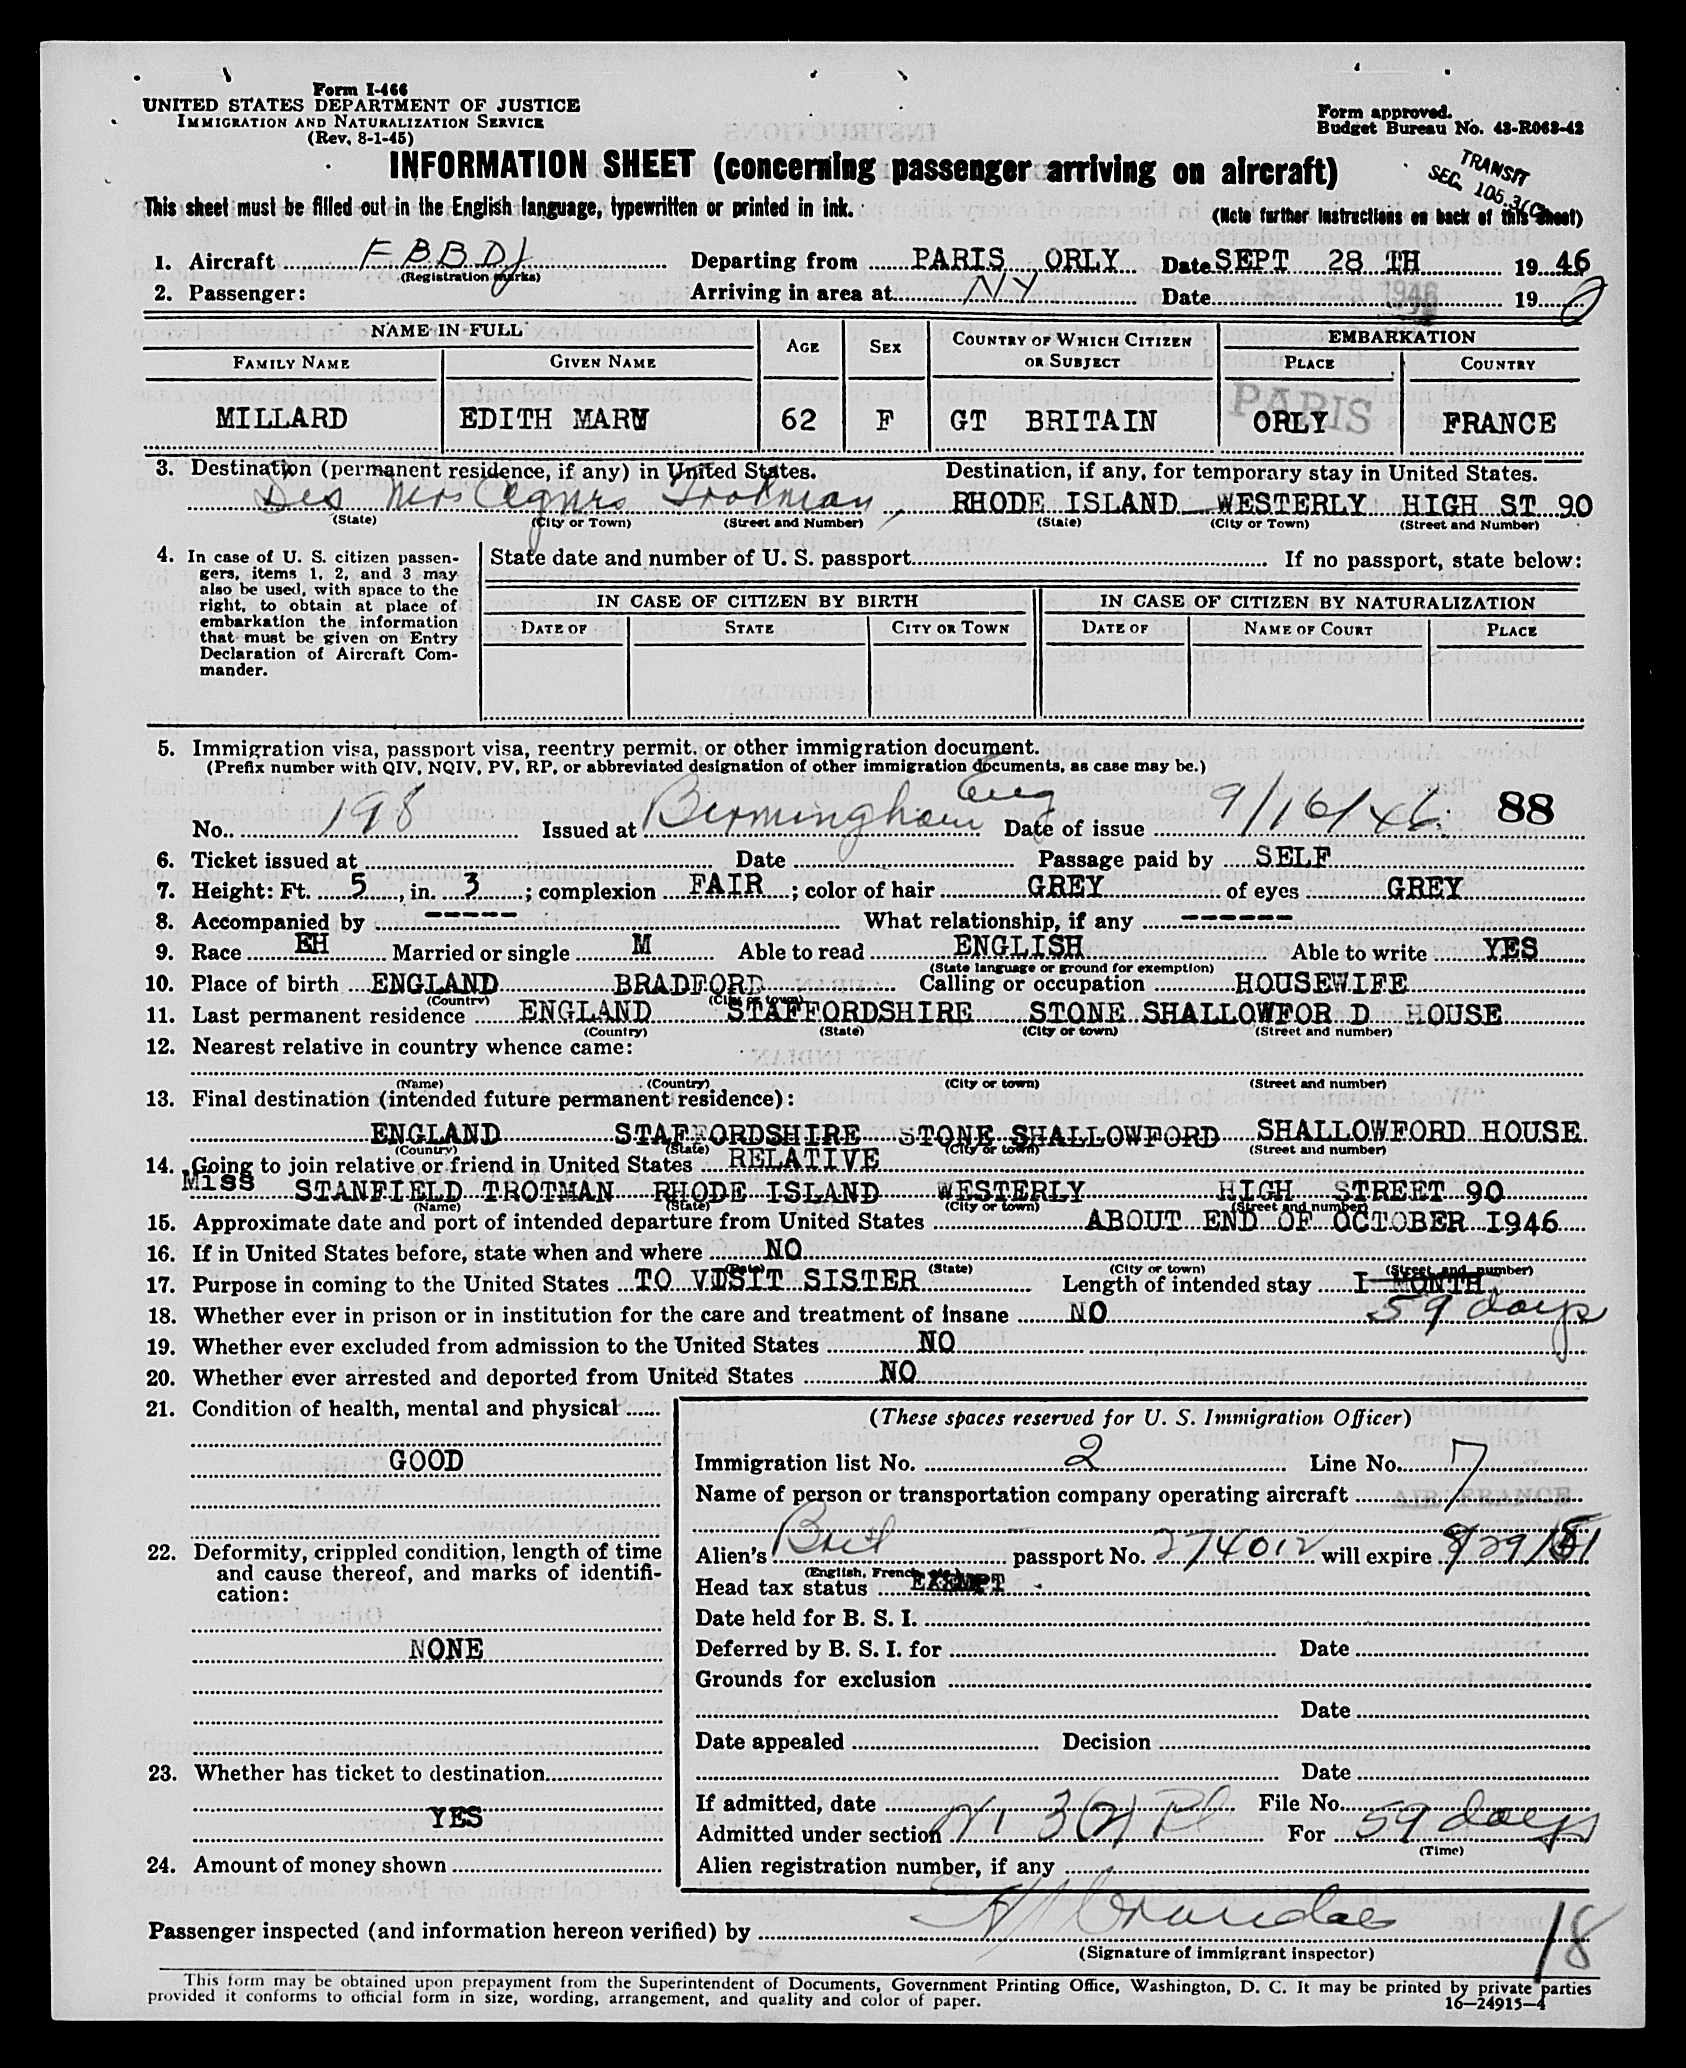 Form I-466
UNITED STATES DEPARTMENT OF JUSTICE
IMMIGRATION AND NATURALIZATION SERVICE
(Rev. 8-1-45)
Form approved.
Budget Bureau No. 43-R063-42
INFORMATION SHEET (concerning passenger arriving on aircraft)
TRANSIT
SEC. 105.3(C)
This sheet must be filled out in the English language, typewritten or printed in ink.
(Note further instructions on back of this sheet)
1. Aircraft F B B D J Departing from PARIS, ORLY Date SEPT 28 TH 19 46
(Registration marks)
2. Passenger: Arriving in area at NY Date 1946 19
NAME IN FULL AGE SEX COUNTRY OF WHICH CITIZEN OR SUBJECT EMBARKATION
FAMILY NAME GIVEN NAME PLACE COUNTRY
PARIS
MILLARD EDITH MARY 62 F GT BRITAIN ORLY FRANCE
3. Destination (permanent residence, if any) in United States. Destination, if any, for temporary stay in United States.
RHODE ISLAND WESTERLY HIGH ST 90
(State) (City or Town) (Street and Number) (State) (City or Town) (Street and Number)
4. In case of U. S. citizen passengers, items 1, 2, and 3 may also be used, with space to the right, to obtain at place of embarkation the information that must be given on Entry Declaration of Aircraft Commander.
State date and number of U. S. passport If no passport, state below:
IN CASE OF CITIZEN BY BIRTH IN CASE OF CITIZEN BY NATURALIZATION
DATE OF STATE CITY OR TOWN DATE OF NAME OF COURT PLACE
5. Immigration visa, passport visa, reentry permit, or other immigration document.
(Prefix number with QIV, NQIV, PV, RP, or abbreviated designation of other immigration documents, as case may be.)
No. 198 Issued at Birmingham Eng Date of issue 9/16/46 88
6. Ticket issued at Date Passage paid by SELF
7. Height: Ft. 5, in. 3; complexion FAIR; color of hair GREY of eyes GREY
8. Accompanied by ----- What relationship, if any ------
9. Race EH Married or single M Able to read ENGLISH Able to write YES
(State language or ground for exemption)
10. Place of birth ENGLAND BRADFORD Calling or occupation HOUSEWIFE
(Country) (City or town)
11. Last permanent residence ENGLAND STAFFORDSHIRE STONE SHALLOWFOR D HOUSE
(Country) (State) (City or town) (Street and number)
12. Nearest relative in country whence came:
(Name) (Country) (City or town) (Street and number)
13. Final destination (intended future permanent residence):
ENGLAND STAFFORDSHIRE STONE SHALLOWFORD SHALLOWFORD HOUSE
(Country) (State) (City or town) (Street and number)
14. Going to join relative or friend in United States RELATIVE
Miss STANFIELD TROTMAN RHODE ISLAND WESTERLY HIGH STREET 90
(Name) (State) (City or town) (Street and number)
15. Approximate date and port of intended departure from United States ABOUT END OF OCTOBER I946
16. If in United States before, state when and where NO
(Date) (State) (City or town) (Street and number)
17. Purpose in coming to the United States TO VISIT SISTER Length of intended stay I MONTH
59 days
18. Whether ever in prison or in institution for the care and treatment of insane NO
19. Whether ever excluded from admission to the United States NO
20. Whether ever arrested and deported from United States NO
21. Condition of health, mental and physical
GOOD
22. Deformity, crippled condition, length of time and cause thereof, and marks of identification:
NONE
23. Whether has ticket to destination
YES
24. Amount of money shown
(These spaces reserved for U. S. Immigration Officer)
Immigration list No. 2 Line No. 7
Name of person or transportation company operating aircraft AIR FRANCE
Alien's Brit passport No. 274012 will expire 8/29/51
(English, French, etc.)
Head tax status EXEMPT
Date held for B. S. I.
Deferred by B. S. I. for Date
Grounds for exclusion
Date
Date appealed Decision
Date
If admitted, date File No.
Admitted under section 3(2) For 59 days
(Time)
Alien registration number, if any
Passenger inspected (and information hereon verified) by
(Signature of immigrant inspector)
18
This form may be obtained upon prepayment from the Superintendent of Documents, Government Printing Office, Washington, D. C. It may be printed by private parties
provided it conforms to official form in size, wording, arrangement, and quality and color of paper.
16—24915-4